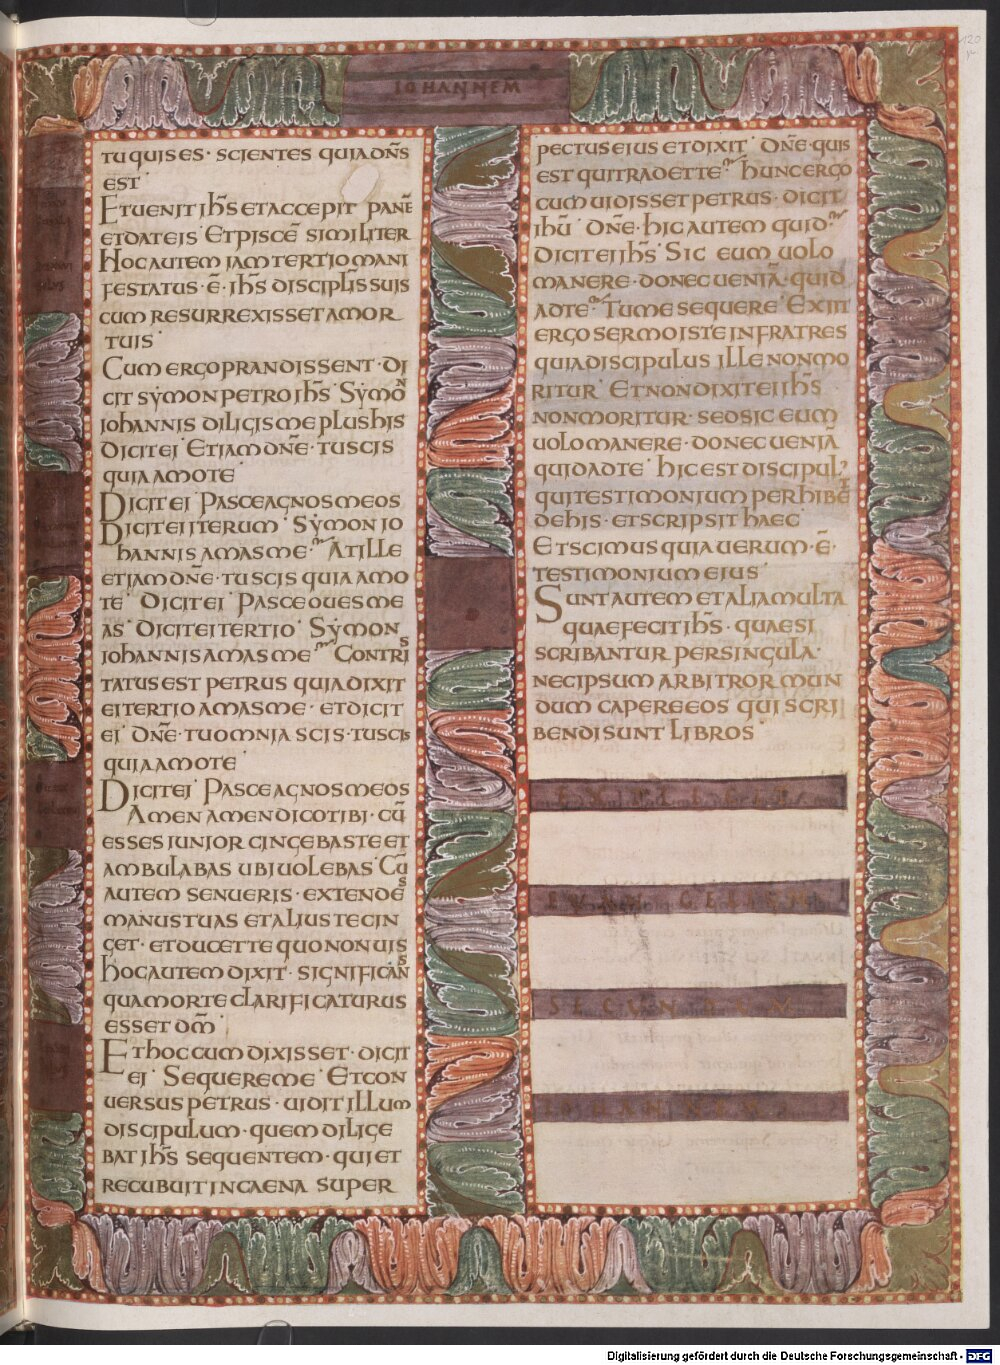 IOHANNEM
TU QUIS ES · SCIENTES QUIA DN̄S
EST
ET UENIT IH̄S ET ACCEPIT PANĒ
ET DAT EIS ET PISCĒ SIMILITER
HOC AUTEM IAM TERTIO MANI
FESTATUS · Ē · IH̄S DISCIPLĪS SUIS
CUM RESURREXISSET A MOR
TUIS
CUM ERGO PRANDISSENT · DI
CIT SYMON PETRO IH̄S SYMON
IOHANNIS DILIGIS ME PLUS HIS
DICIT EI ETIAM DN̄E · TU SCIS
QUIA AMO TE
DICIT EI PASCE AGNOS MEOS
DICIT EI ITERUM SYMON IO
HANNIS AMAS ME · AT ILLE
ETIAM DN̄E · TU SCIS QUIA AMO
TE DICIT EI PASCE OUES ME
AS DICIT EI TERTIO SYMON
IOHANNIS AMAS ME CONTRIS
TATUS EST PETRUS QUIA DIXIT
EI TERTIO AMAS ME · ET DICIT
EI DN̄E · TU OMNIA SCIS · TU SCIS
QUIA AMO TE
DICIT EI PASCE AGNOS MEOS
AMEN AMEN DICO TIBI · CŪ
ESSES IUNIOR CINGEBAS TE ET
AMBULABAS UBI UOLEBAS CŪ
AUTEM SENUERIS · EXTENDES
MANUS TUAS ET ALIUS TE CIN
GET · ET DUCET TE QUO NON UIS
HOC AUTEM DIXIT · SIGNIFICANS
QUA MORTE CLARIFICATURUS
ESSET DM̄
ET HOC CUM DIXISSET · DICIT
EI SEQUERE ME ET CON
UERSUS PETRUS · UIDIT ILLUM
DISCIPULUM · QUEM DILIGE
BAT IH̄S SEQUENTEM · QUI ET
RECUBUIT IN CAENA SUPER
PECTUS EIUS ET DIXIT DN̄E · QUIS
EST QUI TRADET TE HUNC ERGO
CUM UIDISSET PETRUS · DICIT
IHŪ DN̄E · HIC AUTEM QUID ·
DICIT EI IH̄S SIC EUM UOLO
MANERE · DONEC UENIĀ · QUID
AD TE TU ME SEQUERE EXIIT
ERGO SERMO ISTE IN FRATRES
QUIA DISCIPULUS ILLE NON MO
RITUR ET NON DIXIT EI IH̄S
NON MORITUR · SED SIC EUM
UOLO MANERE · DONEC UENIĀ
QUID AD TE HIC EST DISCIPUL'
QUI TESTIMONIUM PERHIBET
DE HIS · ET SCRIPSIT HAEC
ET SCIMUS QUIA UERUM · Ē ·
TESTIMONIUM EIUS
SUNT AUTEM ET ALIA MULTA
QUAE FECIT IH̄S · QUAE SI
SCRIBANTUR PER SINGULA ·
NEC IPSUM ARBITROR MUN
DUM CAPERE EOS QUI SCRI
BENDI SUNT LIBROS
EXPLICIT
EUANGELIUM
SECUNDUM
IOHANNEM
Digitalisierung gefördert durch die Deutsche Forschungsgemeinschaft - DFG